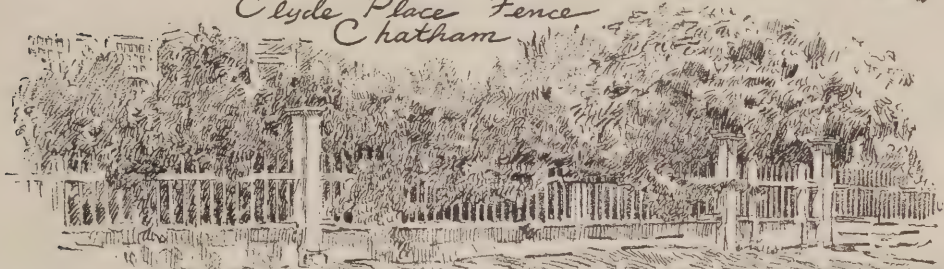 Clyde Place Fence
Chatham